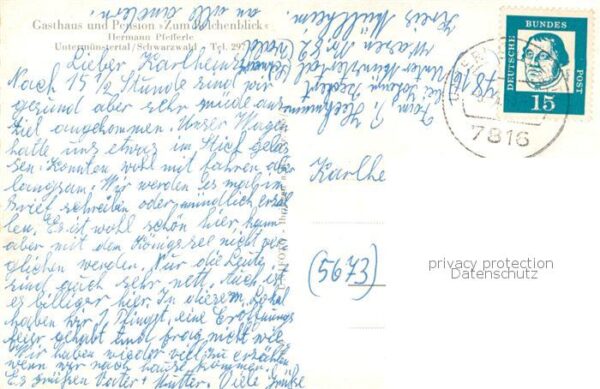 Gasthaus und Pension »Zum Belchenblick«
Hermann Pfefferle
Untermünstertal / Schwarzwald · Tel. 297
Lieber Karlheinz
Nach 15 1/2 Stunde sind wir
gesund aber sehr müde am
Ziel angekommen. Unser Wagen
hatte uns etwas im Stich gelas
sen. Konnten wohl mit fahren aber
langsam. Wir werden es mal im
Brief schreiben oder mündlich erzäh
len. Es ist wohl schön hier, kann
aber mit den Königssee nicht ver
glichen werden. Nur die Leute
sind auch sehr nett. Auch ist
es billiger hier. In diesem Lokal
haben wir 1 Pfingst. eine Eröffnungs
feier gehabt und frag nicht wie
Wir haben wieder viel zu erzählen
wenn wir nach hause kommen.
Es grüßen Vater + Mutter. Viele Grüße
an alle andern.
7816 Untermünstertal
Kreis Müllheim.
DEUTSCHE
BUNDES
POST
15
7816
Karlhe
(5673)
privacy protection
Datenschutz